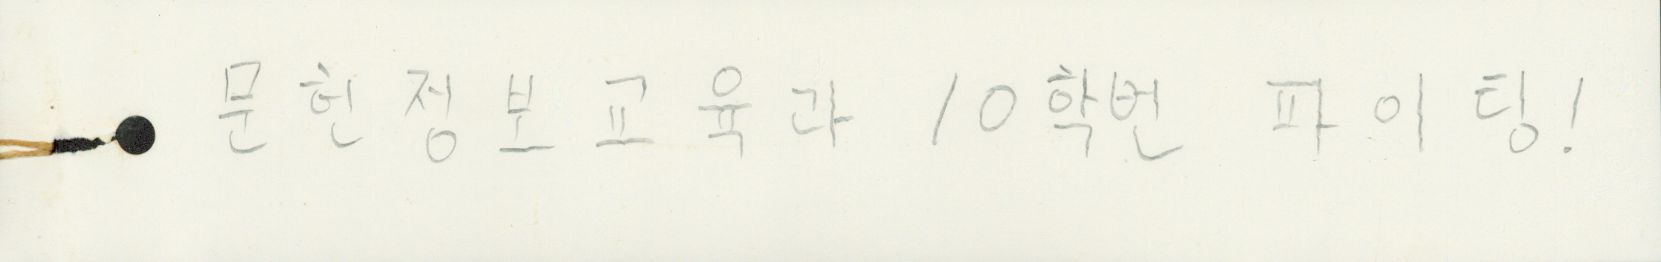 문헌정보교육과 10학번 파이팅!